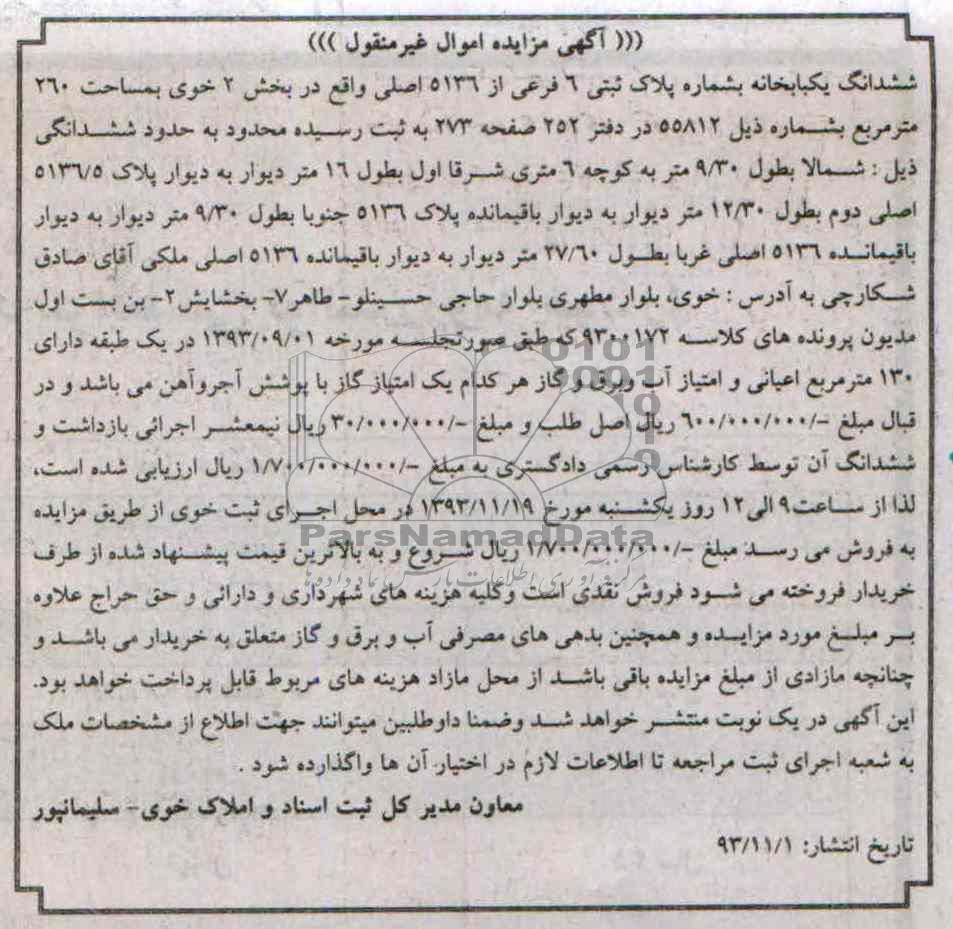 ((( آگهی مزایده اموال غیرمنقول )))
ششدانگ یکبابخانه بشماره پلاک ثبتی ۶ فرعی از ۵۱۳۶ اصلی واقع در بخش ۲ خوی بمساحت ۲۶۰
مترمربع بشماره ذیل ۵۵۸۱۲ در دفتر ۲۵۲ صفحه ۲۷۳ به ثبت رسیده محدود به حدود ششدانگی
ذیل : شمالا بطول ۹/۳۰ متر به کوچه ۶ متری شرقا اول بطول ۱۶ متر دیوار به دیوار پلاک ۵۱۳۶/۵
اصلی دوم بطول ۱۲/۳۰ متر دیوار به دیوار باقیمانده پلاک ۵۱۳۶ جنوبا بطول ۹/۳۰ متر دیوار به دیوار
باقیمانده ۵۱۳۶ اصلی غربا بطول ۲۷/۶۰ متر دیوار به دیوار باقیمانده ۵۱۳۶ اصلی ملکی آقای صادق
شکارچی به آدرس : خوی، بلوار مطهری بلوار حاجی حسینلو- طاهر۷- بخشایش۲- بن بست اول
مدیون پرونده های کلاسه ۹۳۰۰۱۷۲ که طبق صورتجلسه مورخه ۱۳۹۳/۰۹/۰۱ در یک طبقه دارای
۱۳۰ مترمربع اعیانی و امتیاز آب وبرق و گاز هر کدام یک امتیاز گاز با پوشش آجروآهن می باشد و در
قبال مبلغ -/۶۰۰/۰۰۰/۰۰۰ ریال اصل طلب و مبلغ -/۳۰/۰۰۰/۰۰۰ ریال نیمعشر اجرائی بازداشت و
ششدانگ آن توسط کارشناس رسمی دادگستری به مبلغ -/۱/۷۰۰/۰۰۰/۰۰۰ ریال ارزیابی شده است،
لذا از ساعت۹ الی۱۲ روز یکشنبه مورخ ۱۳۹۳/۱۱/۱۹ در محل اجرای ثبت خوی از طریق مزایده
به فروش می رسد مبلغ -/۱/۷۰۰/۰۰۰/۰۰۰ ریال شروع و به بالاترین قیمت پیشنهاد شده از طرف
خریدار فروخته می شود فروش نقدی است وکلیه هزینه های شهرداری و دارائی و حق حراج علاوه
بر مبلغ مورد مزایده و همچنین بدهی های مصرفی آب و برق و گاز متعلق به خریدار می باشد و
چنانچه مازادی از مبلغ مزایده باقی باشد از محل مازاد هزینه های مربوط قابل پرداخت خواهد بود.
این آگهی در یک نوبت منتشر خواهد شد وضمنا داوطلبین میتوانند جهت اطلاع از مشخصات ملک
به شعبه اجرای ثبت مراجعه تا اطلاعات لازم در اختیار آن ها واگذارده شود .
معاون مدیر کل ثبت اسناد و املاک خوی- سلیمانپور
تاریخ انتشار: ۹۳/۱۱/۱
ParsNamadData